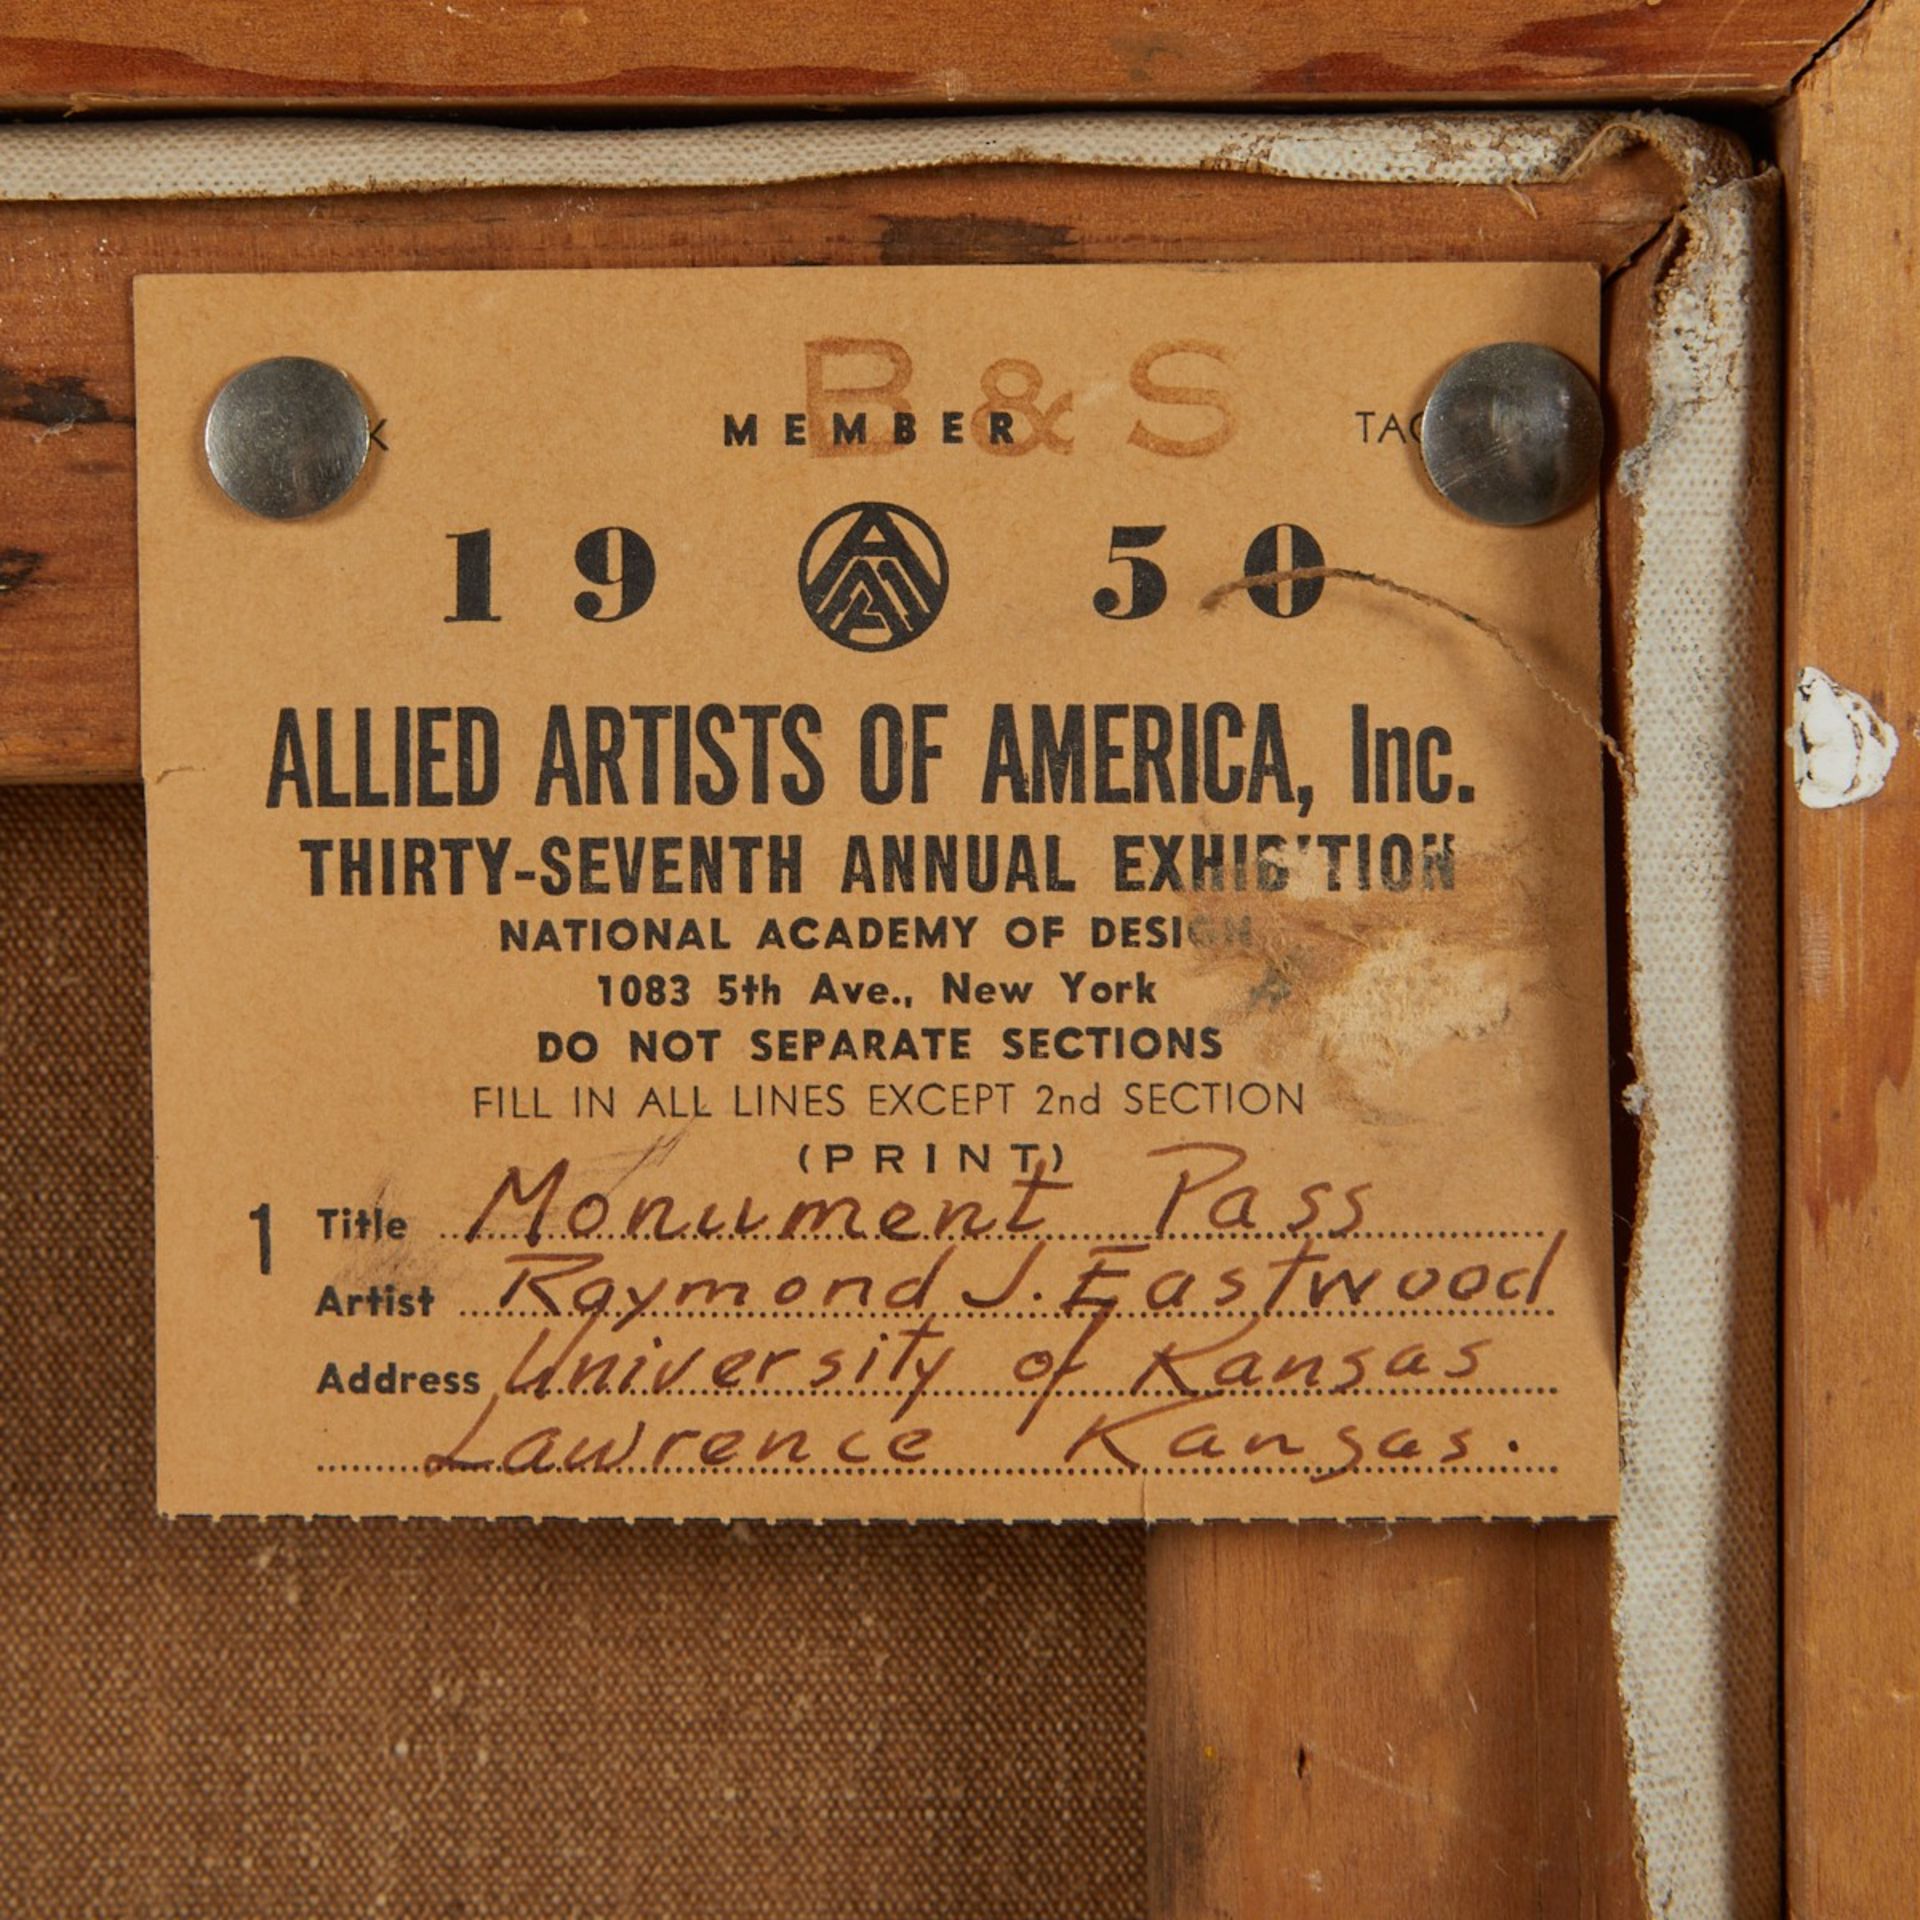 B & S
MEMBER
19 50
ALLIED ARTISTS OF AMERICA, Inc.
THIRTY-SEVENTH ANNUAL EXHIBITION
NATIONAL ACADEMY OF DESIGN
1083 5th Ave., New York
DO NOT SEPARATE SECTIONS
FILL IN ALL LINES EXCEPT 2nd SECTION
(PRINT)
1 Title Monument Pass
Artist Raymond J. Eastwood
Address University of Kansas
Lawrence Kansas.